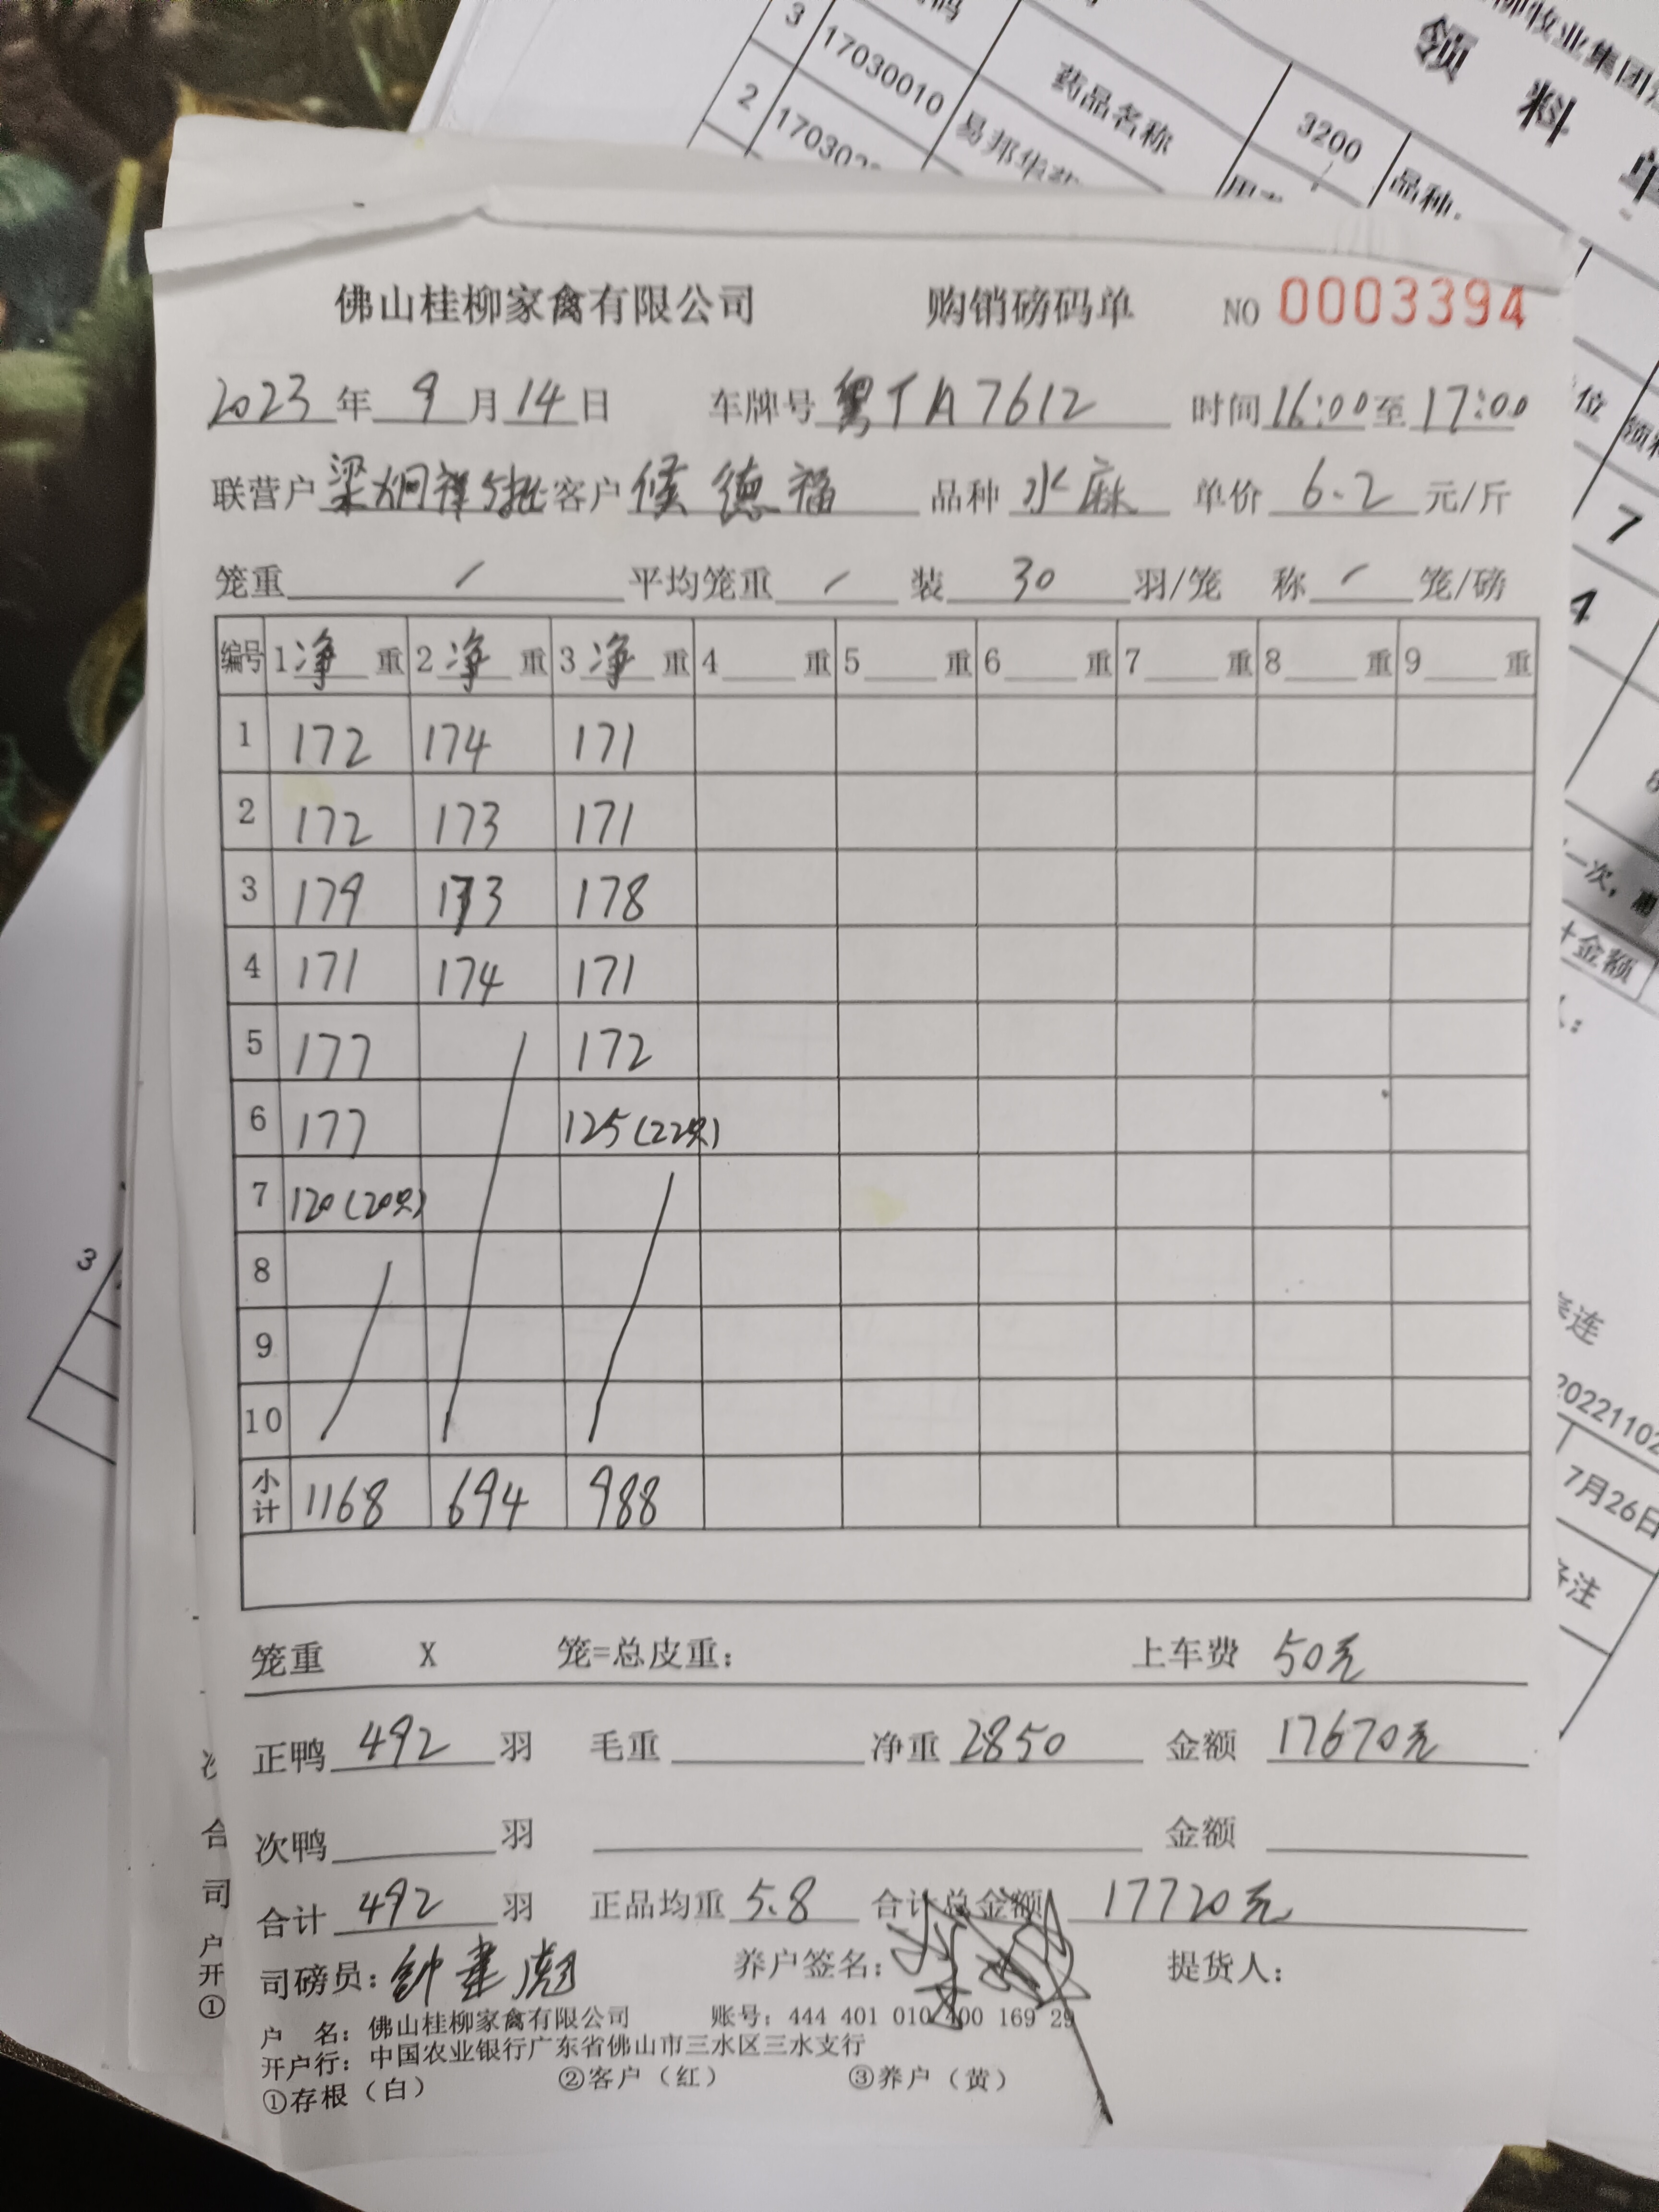 柳牧业集团
领料单
3 17030010 药品名称 3200 品种
2 易邦华
佛山桂柳家禽有限公司 购销磅码单 NO 0003394
2023年9月14日 车牌号 粤TA7612 时间16:00至17:00
联营户梁炯祥5批客户侯德福 品种水麻 单价6.2元/斤
笼重 / 平均笼重 / 装30羽/笼 称 / 笼/磅
编号 1净重 2净重 3净重 4重 5重 6重 7重 8重 9重
1 172 174 171
2 172 173 171
3 179 173 178
4 171 174 171
5 177 172
6 177 125(22只)
7 120(20只)
8
9
10
小计 1168 694 988
笼重 X 笼=总皮重: 上车费 50元
正鸭492羽 毛重 净重2850 金额17670元
次鸭 羽 金额
合计492羽 正品均重5.8 合计总金额 17720元
司磅员:钟建彪 养户签名: 提货人:
户 名: 佛山桂柳家禽有限公司 账号: 444 401 010 400 169 29
开户行: 中国农业银行广东省佛山市三水区三水支行
①存根（白） ②客户（红） ③养户（黄）
位
7
4
一次,
金额
连
20221102
7月26日
备注
3
合
司
户
开
①